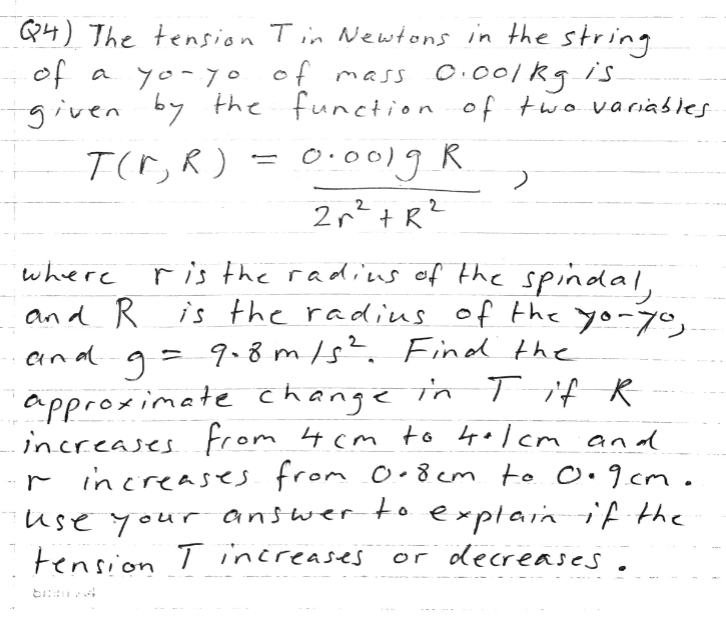 Q4) The tension T in Newtons in the string
of a yo-yo of mass 0.001kg is
given by the function of two variables
T(r, R) = 0.001g R
2r² + R² ,
where r is the radius of the spindal,
and R is the radius of the yo-yo,
and g = 9.8 m/s². Find the
approximate change in T if R
increases from 4cm to 4.1cm and
r increases from 0.8cm to 0.9cm.
Use your answer to explain if the
tension T increases or decreases.